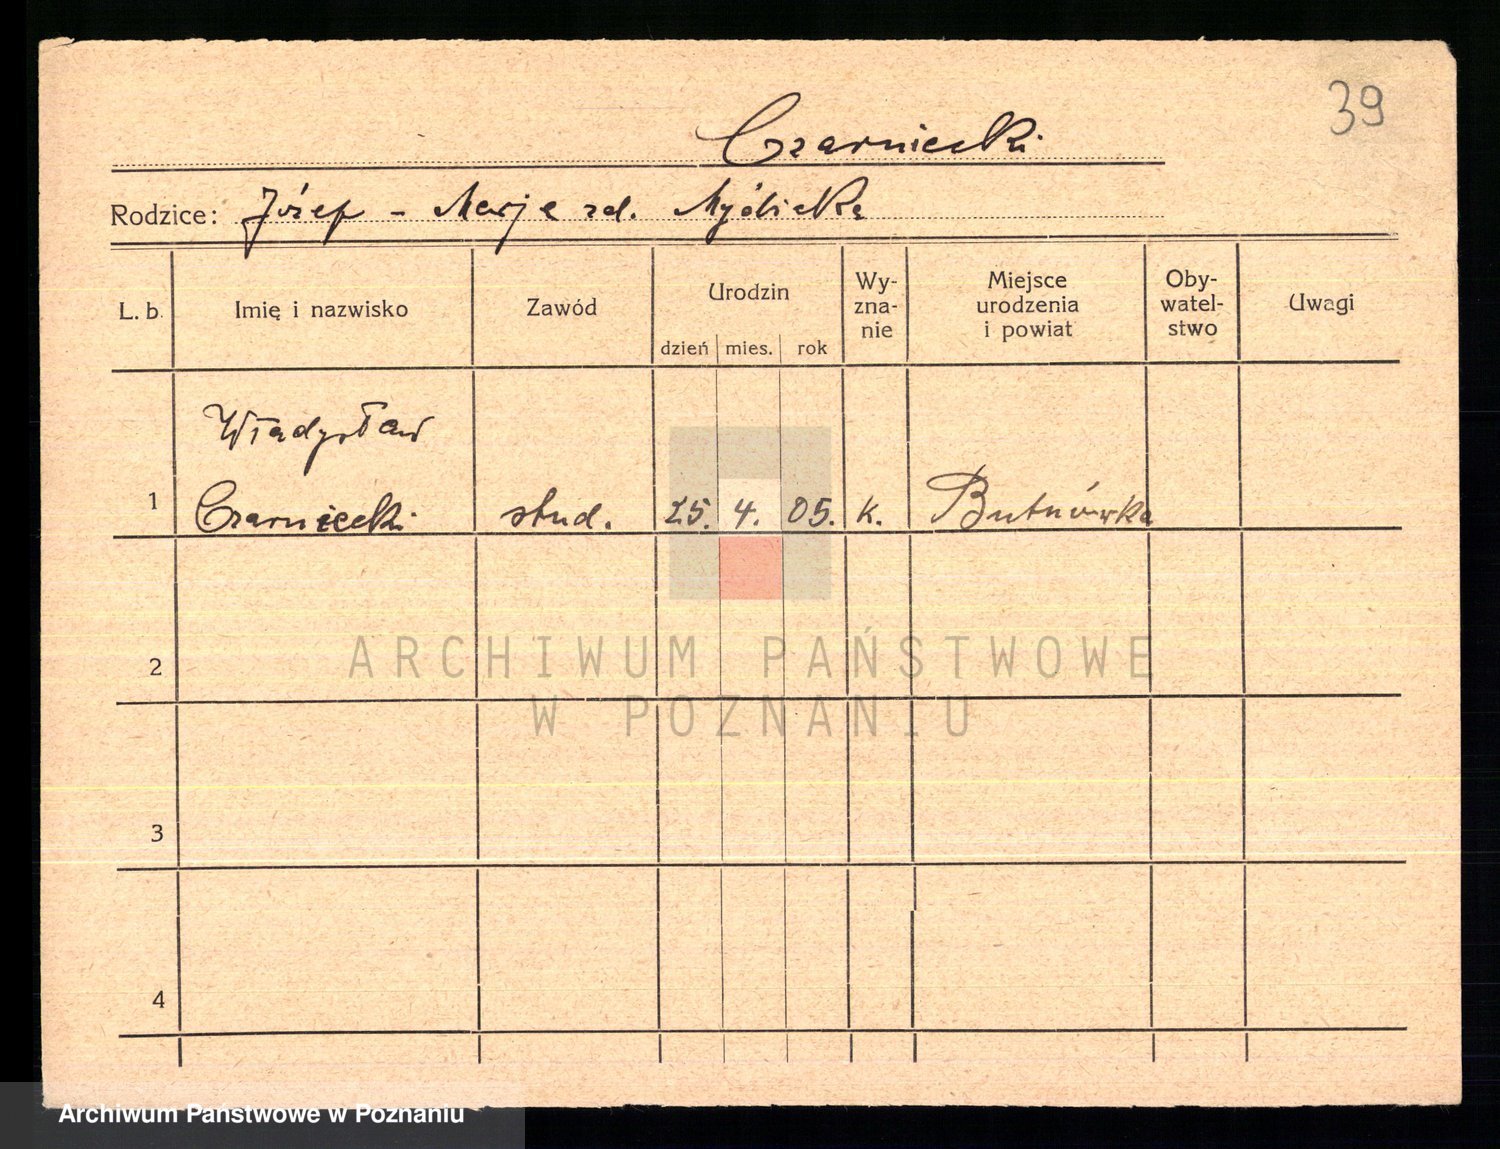 39
Czarniecki
Rodzice: Józef - Marja zd. Myślicka
L. b. Imię i nazwisko Zawód Urodzin Wy- Miejsce Oby- Uwagi
zna- urodzenia watel-
nie i powiat stwo
dzień mies. rok
Władysław
1 Czarniecki stud. 25. 4. 05. k. Butnówka
2
ARCHIWUM PAŃSTWOWE
W POZNANIU
3
4
Archiwum Państwowe w Poznaniu